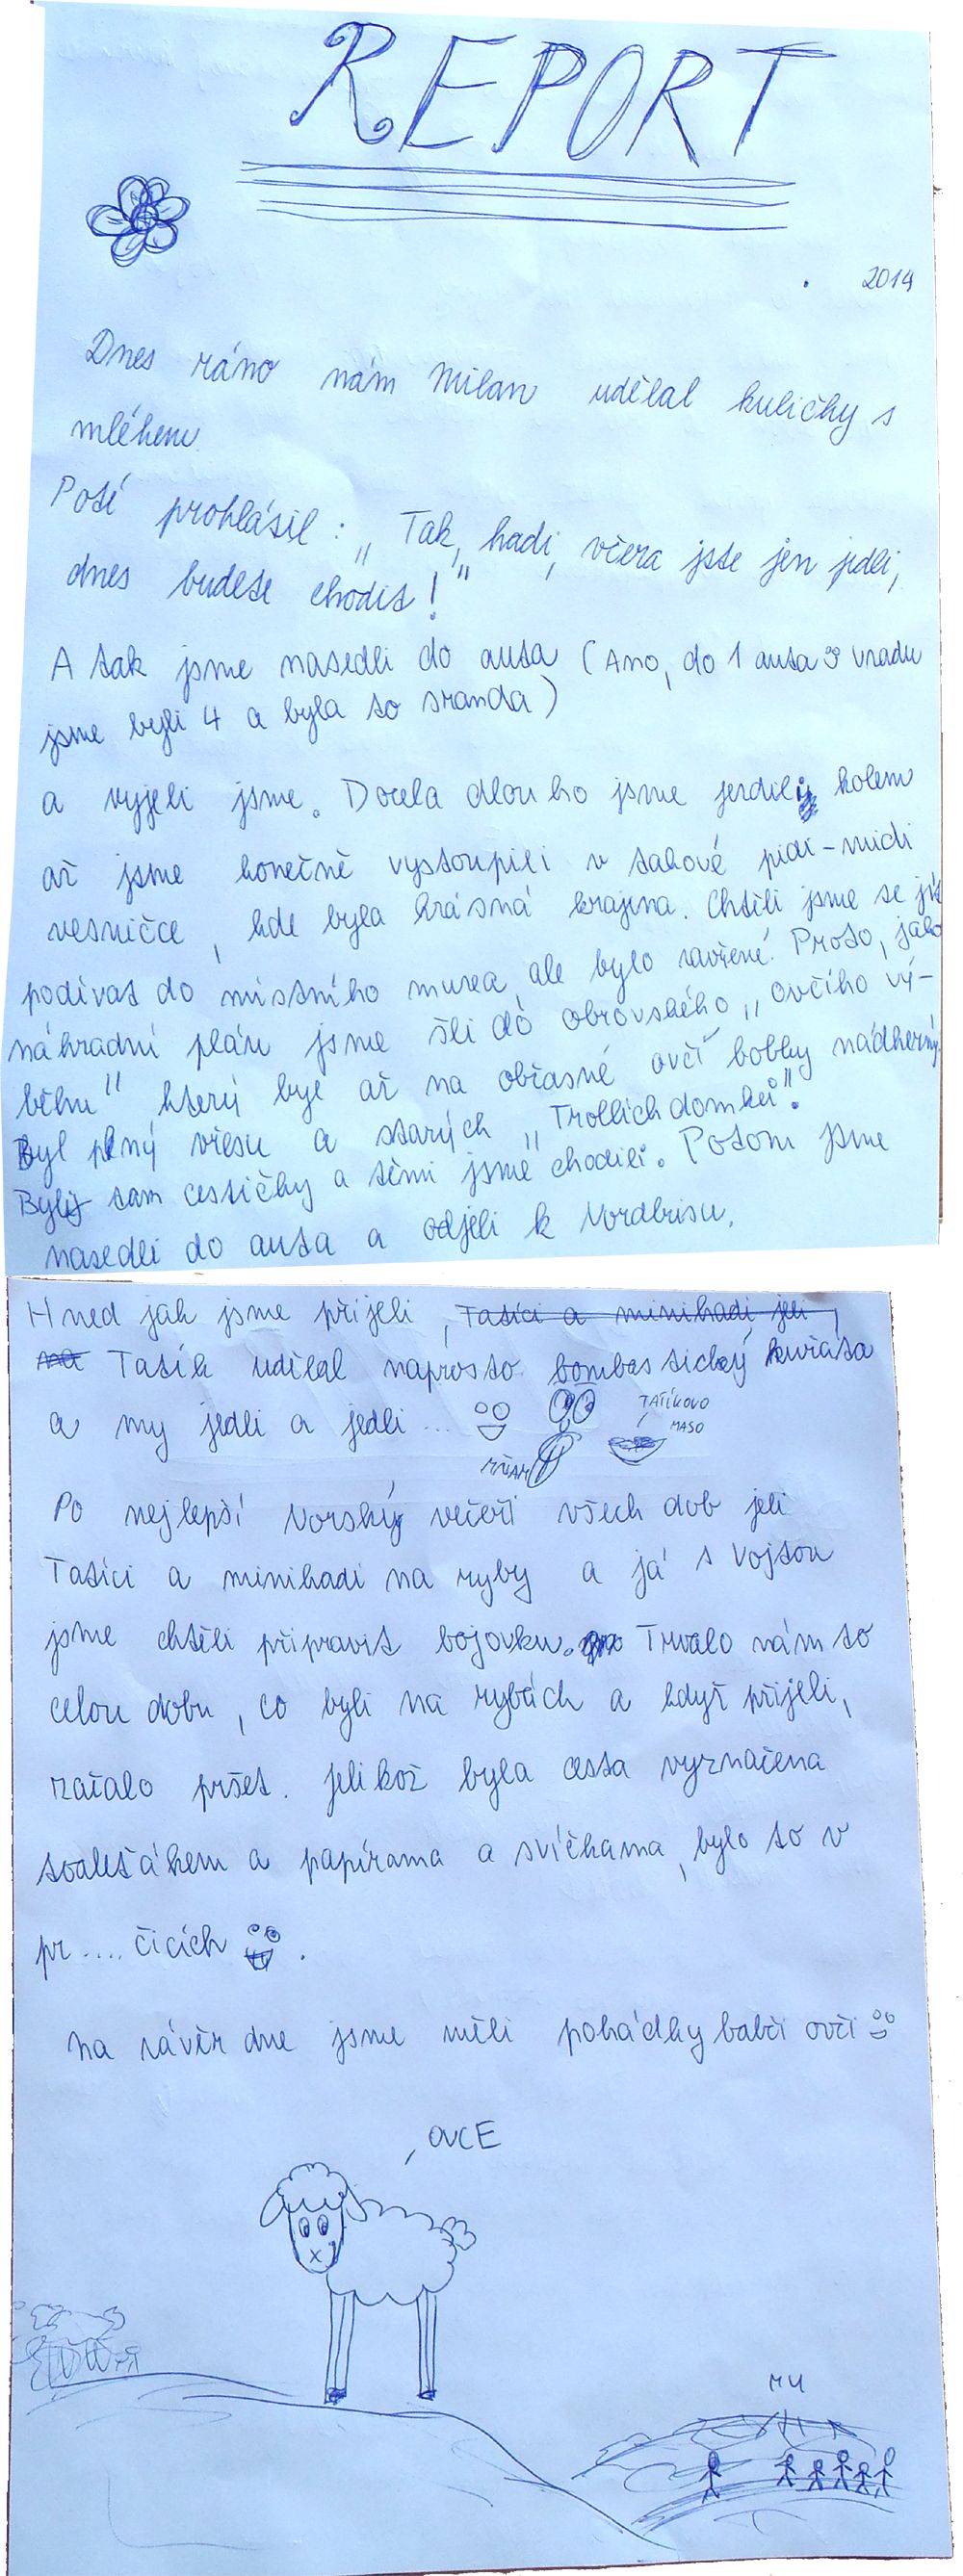 REPORT
. 2014
Dnes ráno nám Milan udělal kuličky s
mlékem.
Poté prohlásil: „Tak, hadi, včera jste jen jedli,
dnes budete chodit!"
A tak jsme nasedli do auta (Ano, do 1 auta vzadu
jsme byli 4 a byla to sranda)
a vyjeli jsme. Docela dlouho jsme jezdili kolem
až jsme konečně vystoupili v takové pidi-midi
vesničce, kde byla krásná krajina. Chtěli jsme se jít
podívat do místního muzea, ale bylo zavřené. Proto, jako
náhradní plán jsme šli do obrovského „ovčího vý-
běhu" který byl až na občasné ovčí bobky nádherný.
Byl plný vřesu a starých „Trollích domků".
Byly tam cestičky a těmi jsme chodili. Potom jsme
nasedli do auta a odjeli k Nordbrisu.
Hned jak jsme přijeli, Tatíci a minihadi jeli,
na Tatík udělal naprosto bombastický kuřata
a my jedli a jedli...
TATÍKOVO
MASO
MŇAM
Po nejlepší Norský večeři všech dob jeli
Tatíci a minihadi na ryby a já s Vojtou
jsme chtěli připravit bojovku. Trvalo nám to
celou dobu, co byli na rybách a když přijeli,
začalo pršet. jelikož byla cesta vyznačena
toaleťákem a papírama a svíčkama, bylo to v
pr....čicích.
Na závěr dne jsme měli pohádky babči ovčí
OVCE
MY